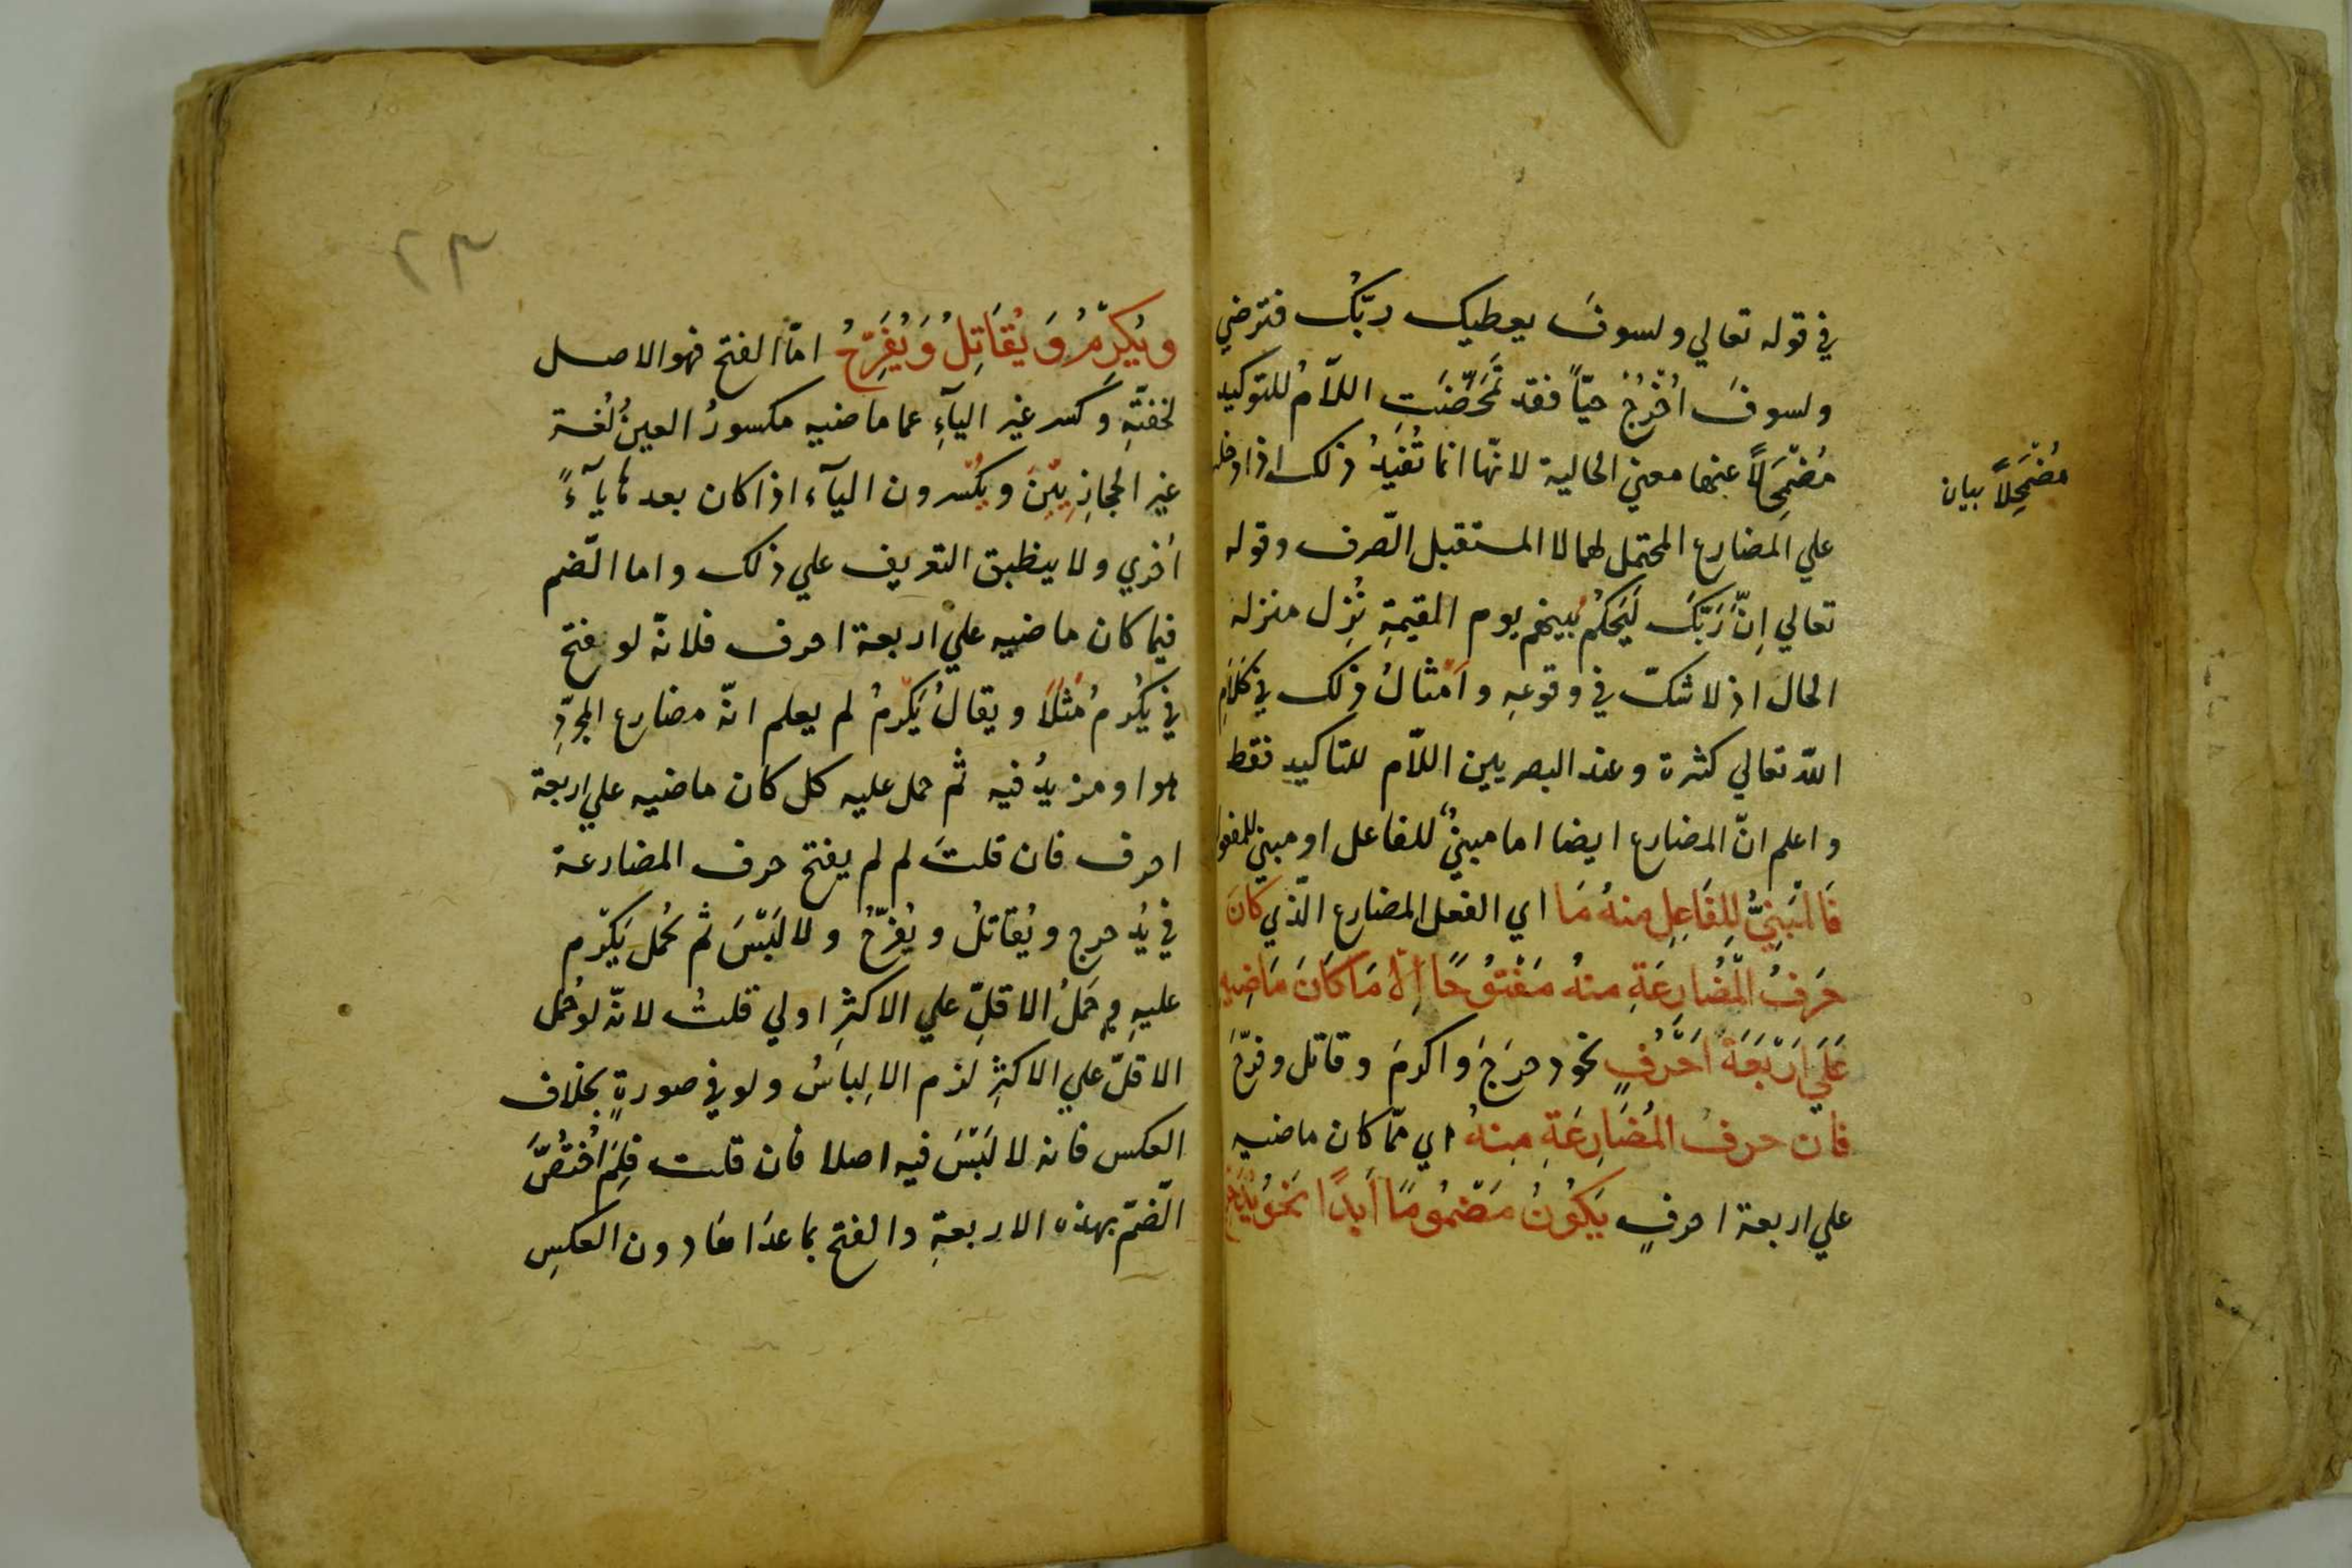 في قوله تعالي ولسوفَ يعطيك ربّكُ فترضي
ولسوفَ اُخْرَجُ حيّاً فقد تَمَحَّضَتِ اللّامُ للتوكيد
مُضْمَحِلاًّ عنها معني الحالية لانّها انما تُفيدُ ذلك اذا دخلت
مُضْمَحِلاًّ بيان
علي المضارع المحتمل لهما لا المستقبل الصّرف وقوله
تعالي اِنَّ رَبَّكَ لَيَحْكُمُ بينهم يوم القيمةِ نُزِل منزلة
الحال اذ لا شكّ في وقوعِهِ واَمْثالُ ذلك في كَلَامِ
اللّه تعالي كثرة وعند البصريين اللّام للتاكيد فقط
واعلم انّ المضارع ايضا اما مبنيٌّ للفاعل او مبني للمفعول
فَالْمَبْنِيُّ لِلفَاعِلِ منهُ مَا اي الفعل المضارع الّذي كَانَ
حَرفُ الْمُضَارِعَةِ منهُ مَفْتُوحًا اِلّا مَا كَانَ مَاضِيهِ
عَلَي اَرْبَعَةَ اَحْرُفٍ نحو دحرَجَ وَاكرمَ وقاتل وفرّحَ
فان حرفُ المُضَارِعَةِ مِنهُ اي ممّا كان ماضيه
علي اربعة احرفٍ يَكُونُ مَضْمُومًا اَبدًا نَحْوُ يُدَحرج
ويُكرِّمُ وَ يُقَاتِلُ وَ يُفَرِّحُ امّا الفتح فهو الاصل
لخفتّهِ وكسر غير اليآءِ مما ماضيه مكسورُ العينِ لُغة
غير الحجازِيّينَ ويكْسرون اليآء اذا كان بعدها يآءً
اُخري ولا ينطبق التعريف علي ذلك واما الضّم
فيما كان ماضيه علي اربعة احرف فلانّه لو فتح
في يُكْرِمُ مَثَلاً ويقالُ يَكْرِمُ لم يعلم انّه مضارع المجرّدِ
هو او مزيدُ فيه ثم حمل عليه كل كان ماضيه علي اربعة
احرف فان قلتَ لم لم يفتح حرف المضارعة
في يُدحرج ويُقاتلُ ويُفرّحُ ولا لَبْسَ ثم حُمل يَكْرم
عليهِ وحَملُ الاقلِّ علي الاكثرِ اولي قلتُ لانّه لو حُمل
الاقلّ علي الاكثرِ لزم الالِباسُ ولو في صورةٍ بخلاف
العكس فانه لا لَبْسَ فيه اصلا فان قلت فلِمَ اخْتُصَّ
الضّمّ بهذه الاربعةِ والفتح بما عدَاهَا دون العكسِ